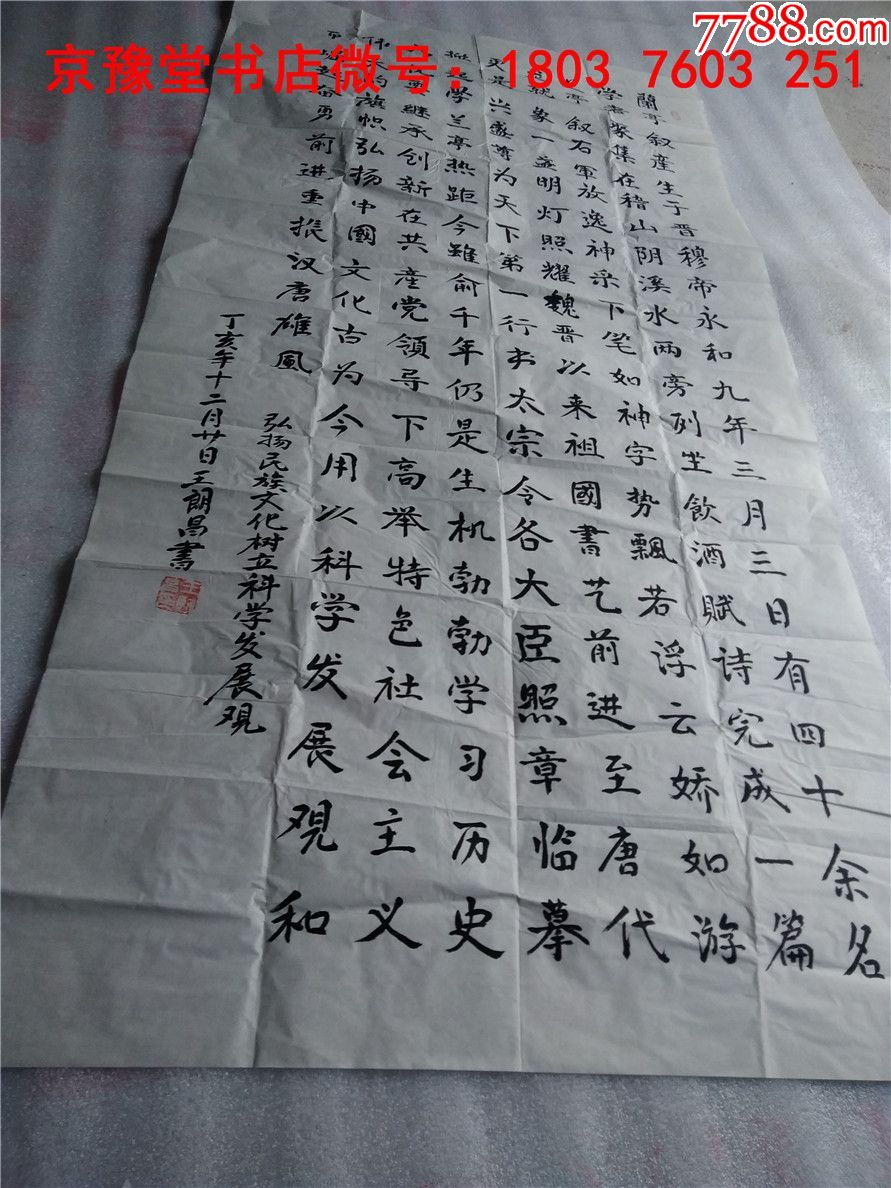 7788.com
京豫堂书店微号：1803 7603 251
蘭亭叙產生于晋穆帝永和九年三月三日有四十余名
学者聚集在稽山阴溪水两旁列坐飲酒賦诗完成一篇
亭叙右軍放逸神采下笔如神字势飄若浮云娇如游
號象一盏明灯照耀魏晋以来祖國書艺前进至唐代
更是兴盛尊为天下第一行书太宗令各大臣照章临摹
掀起学兰亭热距今雖俞千年仍是生机勃勃学习历史
继承创新在共產党领导下高举特色社会主义
的旗帜弘扬中國文化古为今用以科学发展观和
奋勇前进重振汉唐雄風
弘扬民族文化树立科学发展观
丁亥年十二月廿日王朗昌書